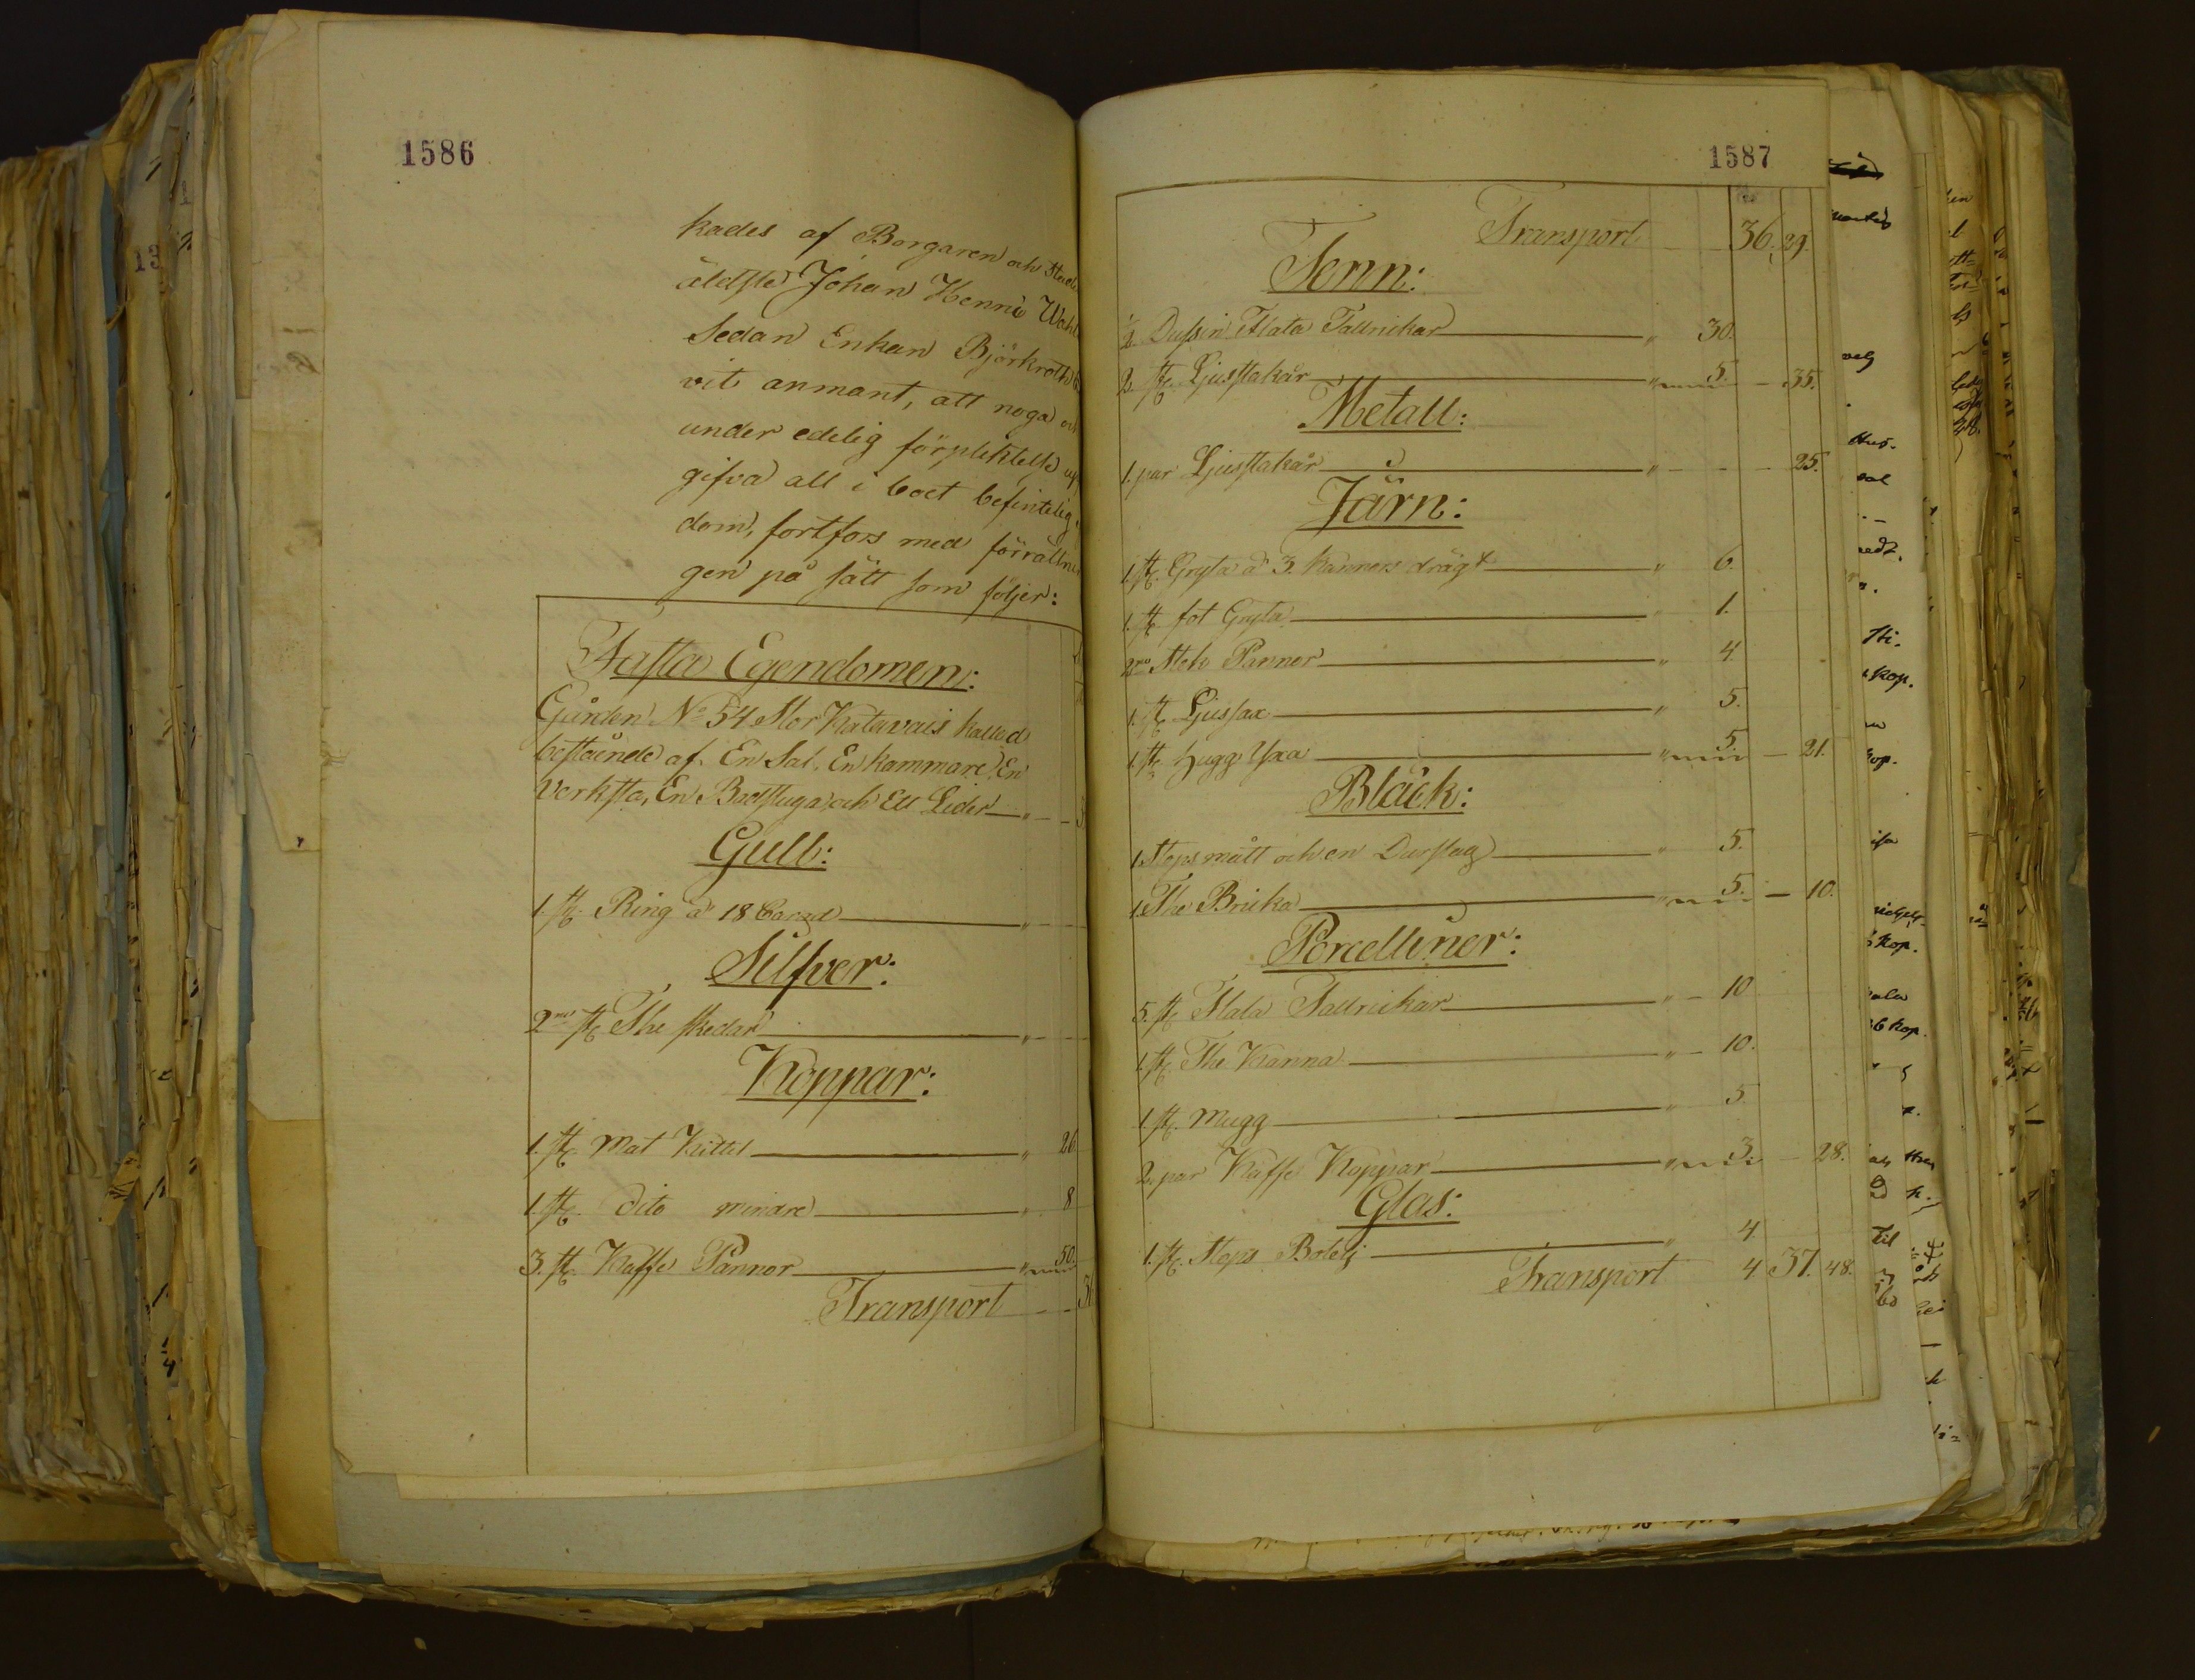 1586
kades af Borgaren och Stads
äldste Johan Henric Wahl
Sedan Enkan Björkroth
vit anmant, att noga och
under edelig förpliktelse up
gifva all i boet befintelig
dom, fortfors med förrättnin
gen på sätt som följer:
Fasta Egendomen:
Gården No 54 Stor Katavais kallad
bestående af En Sal, En kammare, En
Verksta, En Badstuga, och Ett Lider
Gull:
1. st. Ring à 18 Carad
Silfver:
2ne st The skedar
Koppar:
1. st. Mat Kittel " 26
1. st. dito mindre " 8
3. st. Kaffe Pannor " 50.
Transport 36
1587
Transport 36. 29.
Tenn:
1/2 Dussin Flata Tallrickar " 30.
2. st. Ljusstakar " 5. 35.
Metall:
1. par Ljusstakar " 25.
Järn:
1. st. Gryta à 3. kanners drägt " 6.
1. st. fot Gryta " 1.
2ne Stek Pannor " 4.
1. st. Ljussax " 5.
1. st. hugg Yxa " 5. 21.
Bläck:
1. Stops mått och en Durslag " 5.
1. The Bricka " 5. 10.
Porcelliner:
5. st. Flata Tallrickar " 10
1. st. The Kanna " 10.
1. st. Mugg " 5
2. par Kaffe Koppar " 3. 28.
Glas:
1. st. Stops Botelj " 4
Transport 4 37. 48.